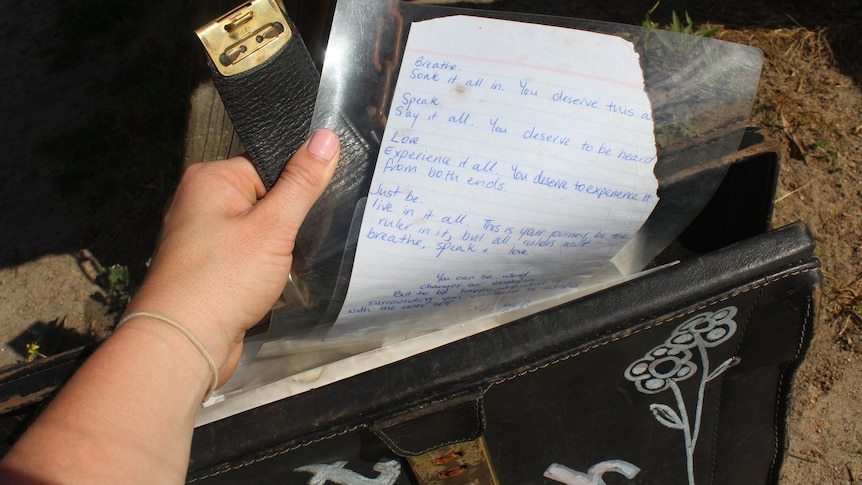 Breathe.
Soak it all in. You deserve this a
Speak.
Say it all. You deserve to be heard
Love
Experience it all. You deserve to experience it
from both ends.
Just be.
live in it all. This is your journey be the
ruler in it, but all rulers must
breathe, speak + love
You can be
But to be happy with
surrounding you
with the